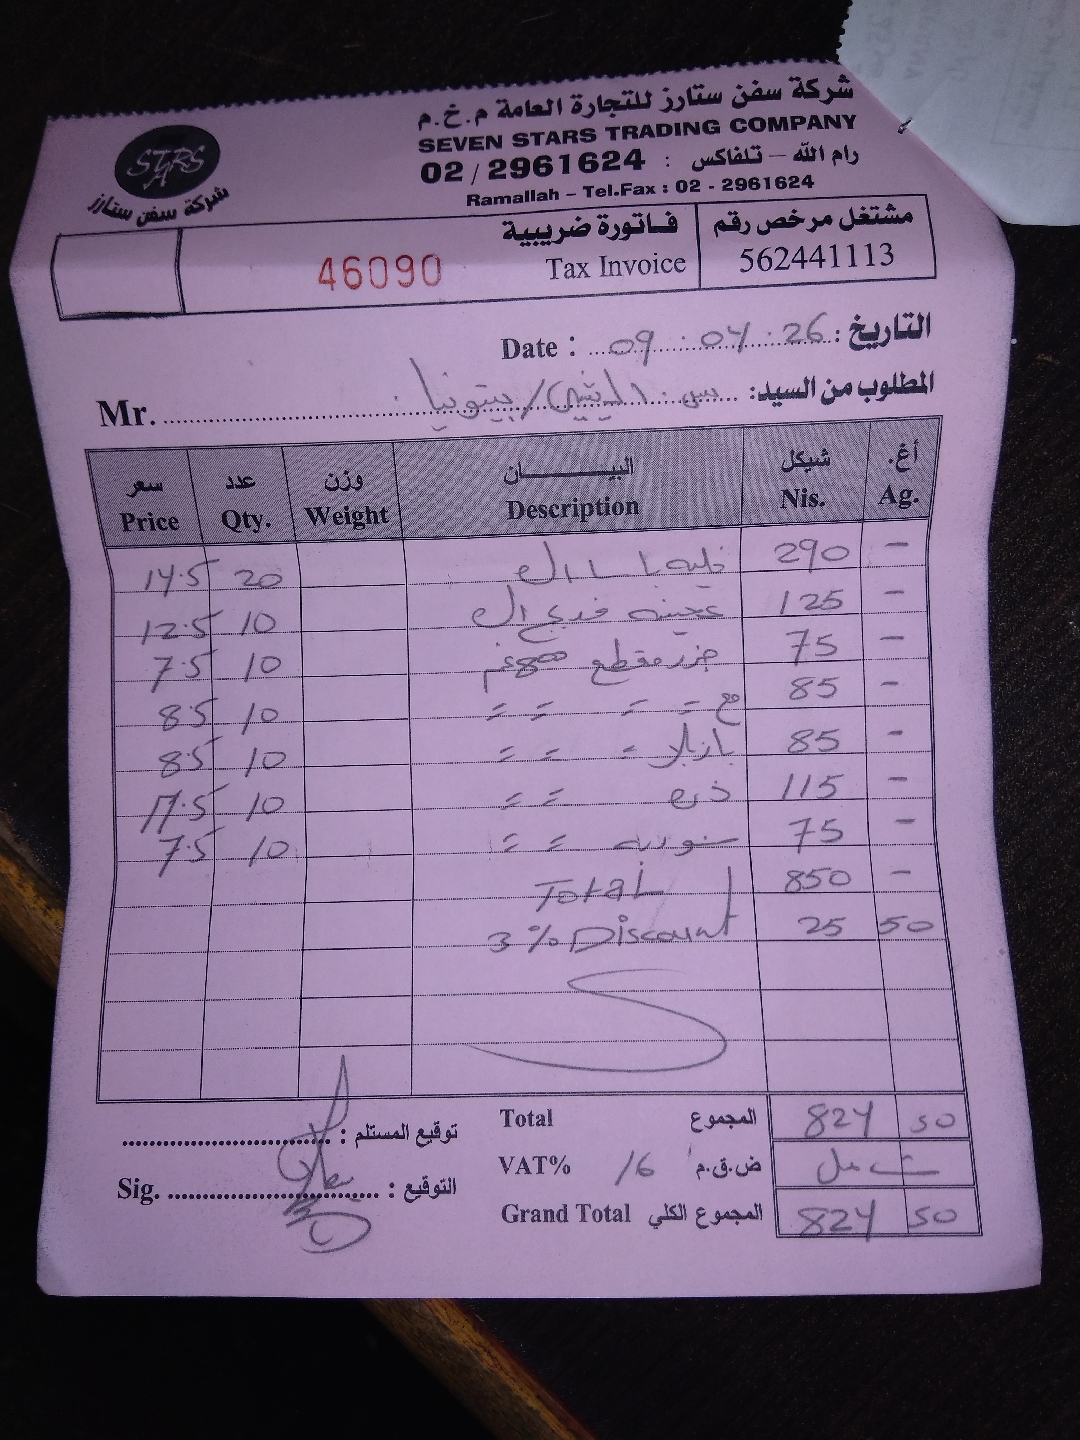 شركة سفن ستارز للتجارة العامة م.خ.م
SEVEN STARS TRADING COMPANY
رام الله – تلفاكس : 02/2961624
Ramallah – Tel.Fax : 02 - 2961624
STARS
شركة سفن ستارز
مشتغل مرخص رقم
562441113
فاتورة ضريبية
Tax Invoice
46090
التاريخ : Date : 09 : 04 : 26
المطلوب من السيد: / بيتونيا Mr.
سعر عدد وزن البيـــــــان شيكل أغ.
Price Qty. Weight Description Nis. Ag.
14.5 20 290 -
12.5 10 عجينة 125 -
7.5 10 جزر مقطع 800غم 75 -
8.5 10 = = = = 85 -
8.5 10 بازيلا = = 85 -
11.5 10 ذره = = 115 -
7.5 10 = = 75 -
Total 850 -
3% Discount 25 50
Total المجموع 824 50
VAT% 16 ض.ق.م شامل
Grand Total المجموع الكلي 824 50
توقيع المستلم :
Sig. التوقيع :